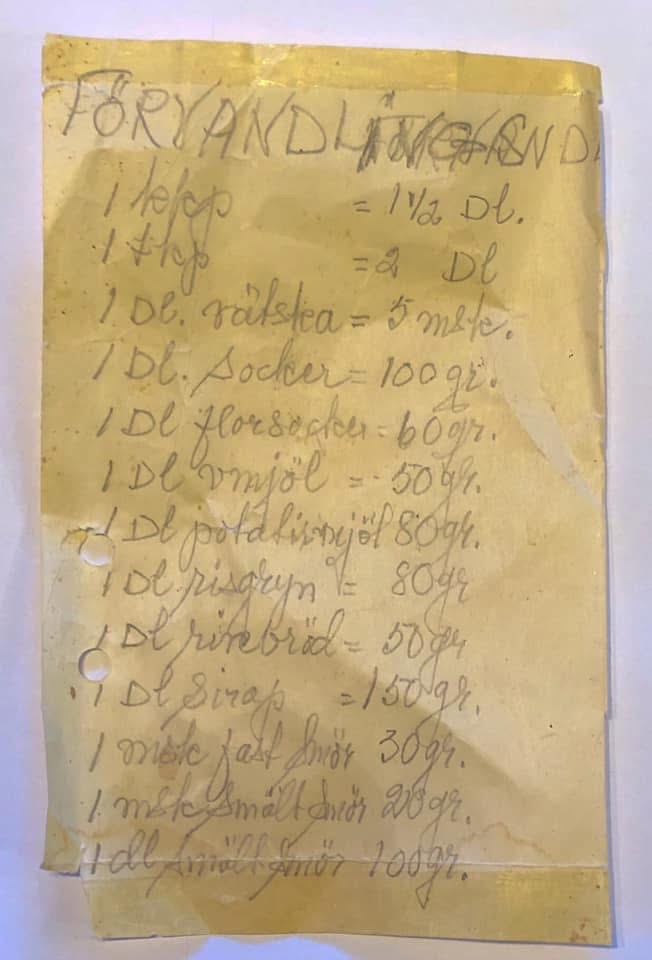 FÖRVANDLINGS
1 kkp = 1 1/2 Dl.
1 tkp = 2 Dl
1 Dl. vätska = 5 msk.
1 Dl. socker = 100 gr.
1 Dl florsocker = 60 gr.
1 Dl vmjöl = 50 gr.
1 Dl potatismjöl 80 gr.
1 Dl risgryn = 80 gr
1 Dl rivebröd = 50 gr
1 Dl Sirap = 150 gr.
1 msk fast smör 30 gr.
1 msk smält smör 20 gr.
1 dl smält smör 100 gr.